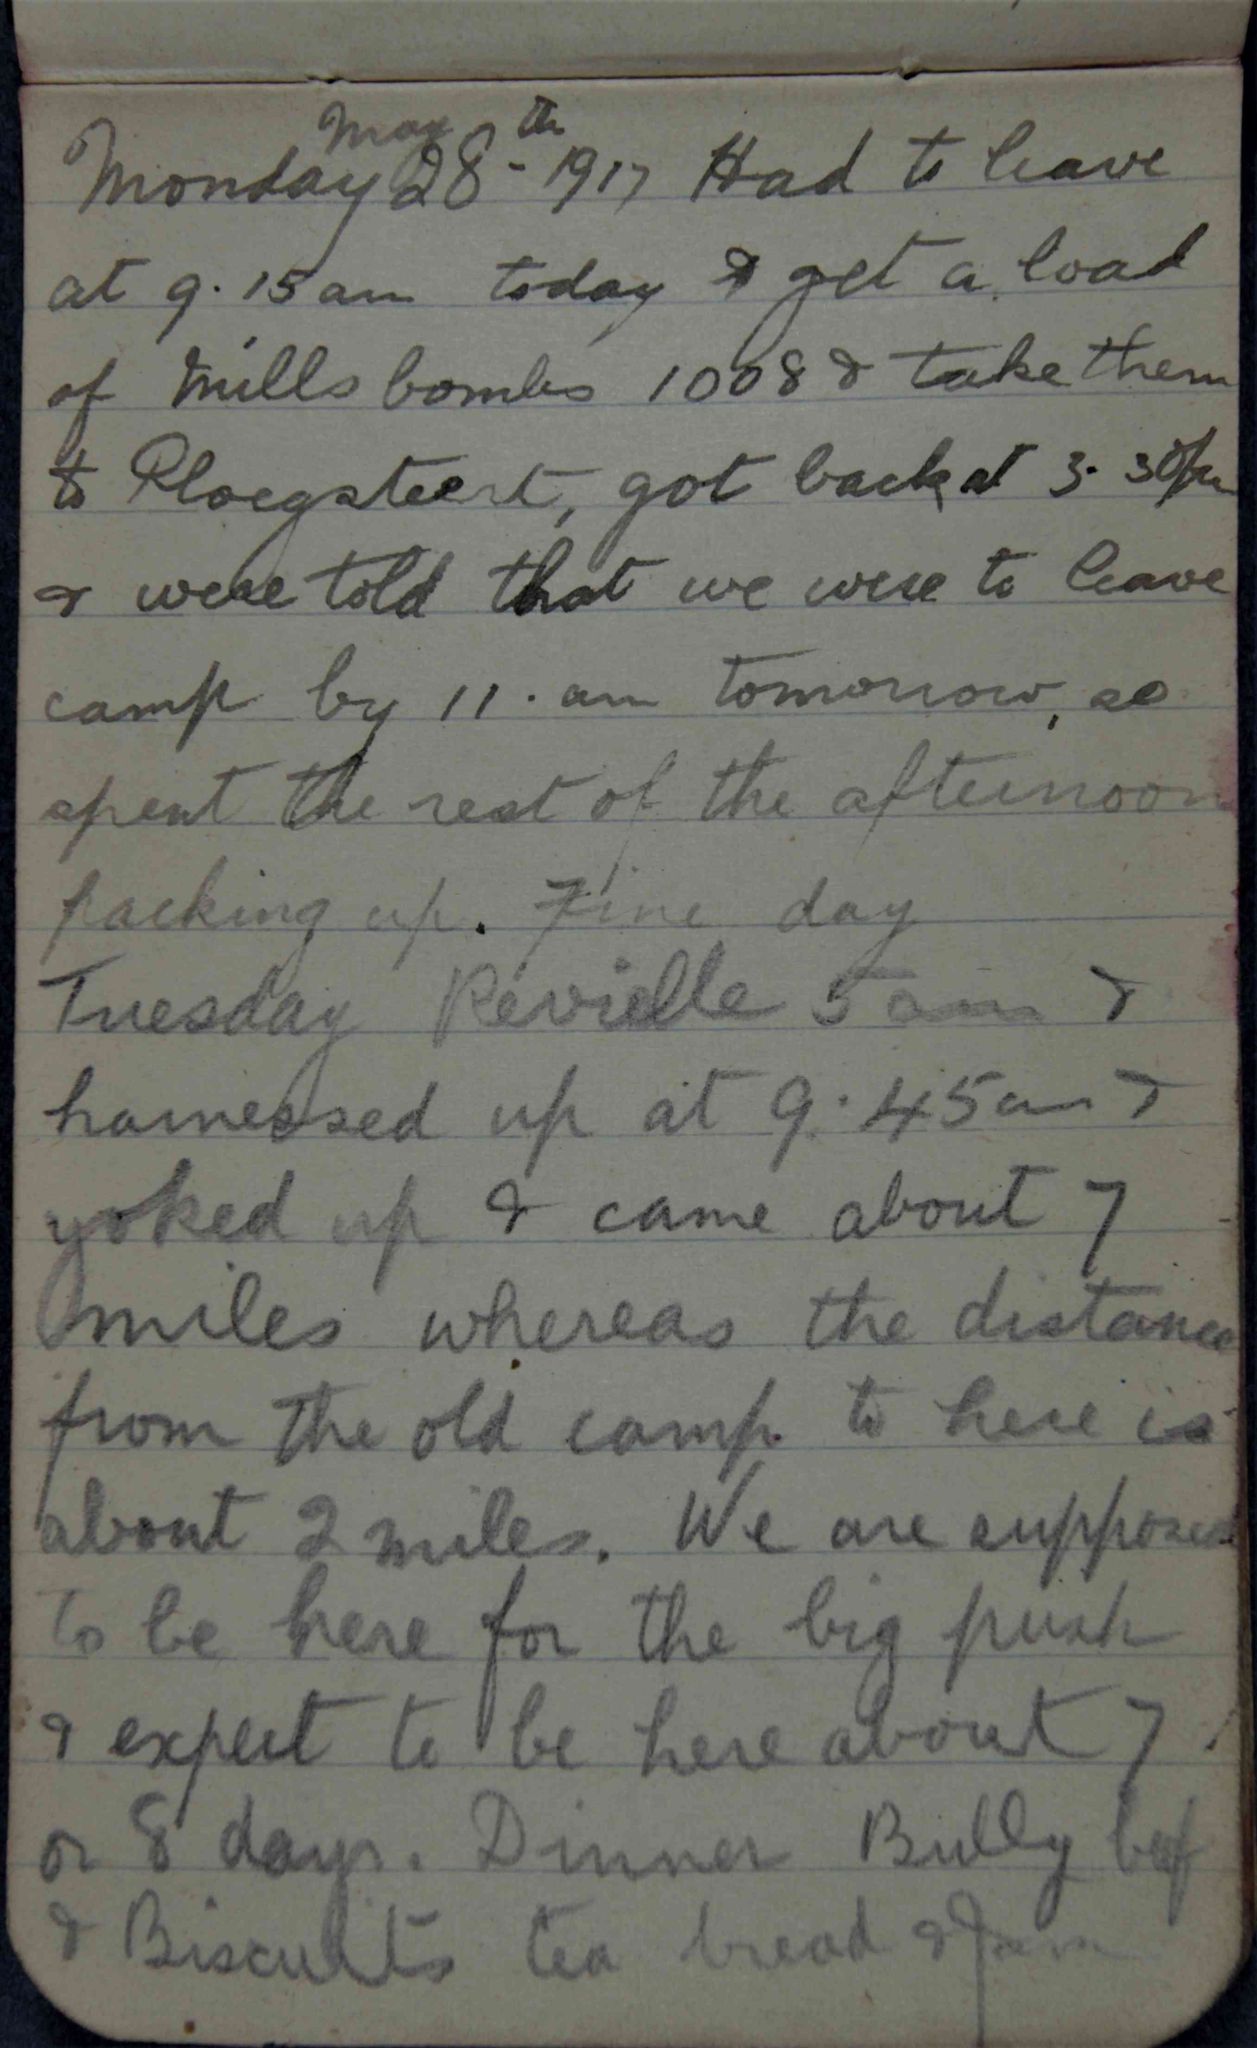 Monday May 28th 1917 Had to leave
at 9.15 am today & get a load
of Mills bombs 1008 & take them
to Ploegsteert, got back at 3.30pm
& were told that we were to leave
camp by 11. am tomorrow, so
spent the rest of the afternoon
packing up. Fine day
Tuesday Revielle 5 am &
harnessed up at 9.45am &
yoked up & came about 7
miles whereas the distance
from the old camp to here is
about 2 miles. We are supposed
to be here for the big push
& expect to be here about 7
or 8 days. Dinner Bully beef
& Biscuits tea bread & Jam